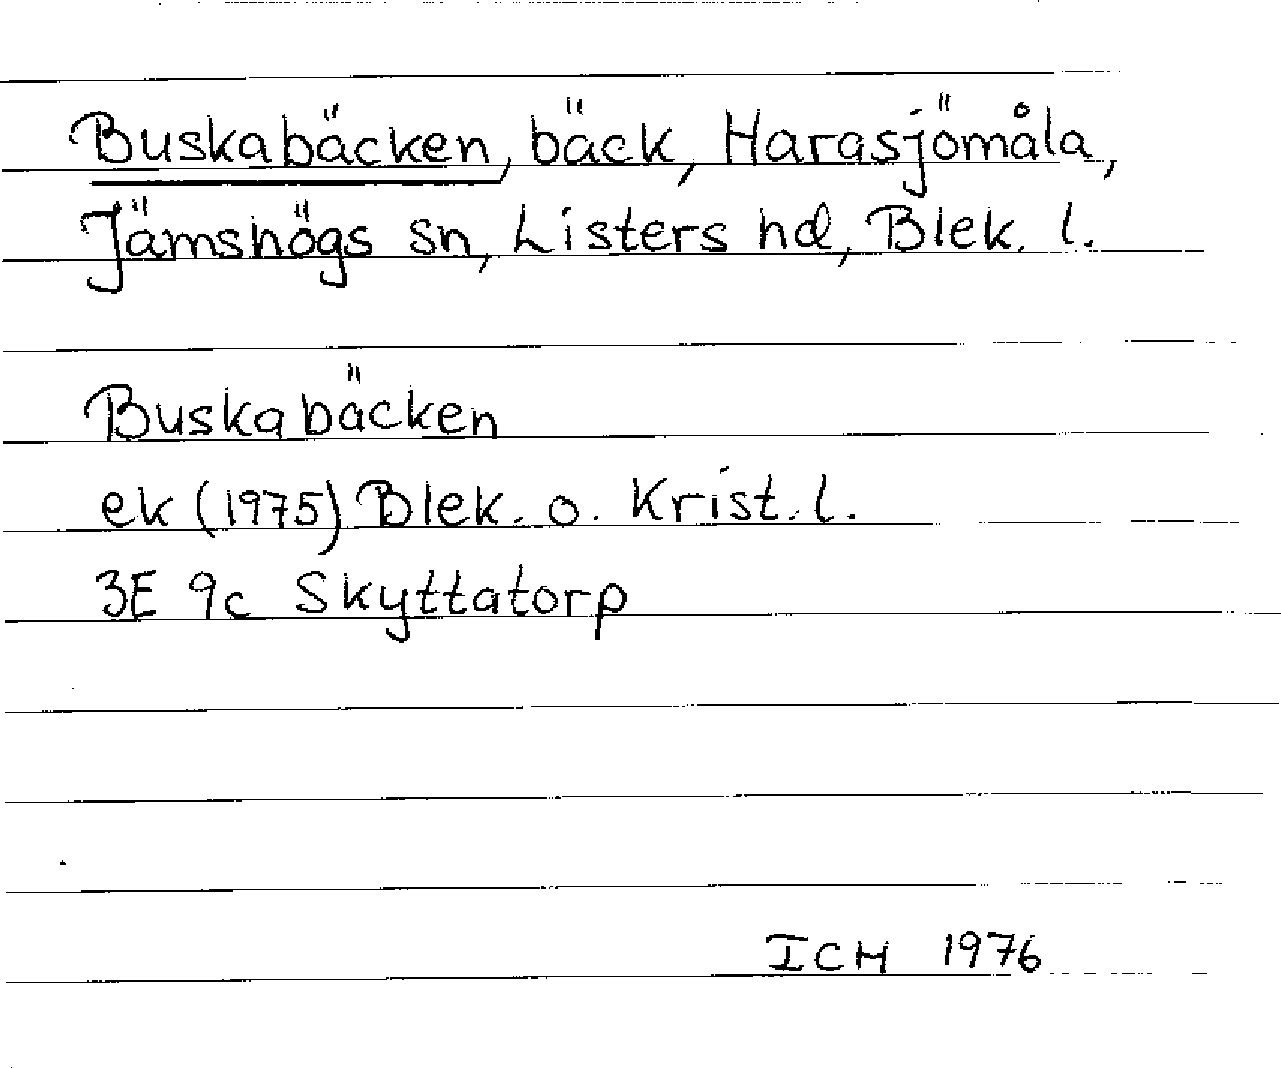 Buskabäcken, bäck, Harasjömåla,
Jämshögs sn, Listers hd, Blek. l.
Buskabäcken
ek (1975) Blek. o. Krist. l.
3E 9c Skyttatorp
ICH 1976